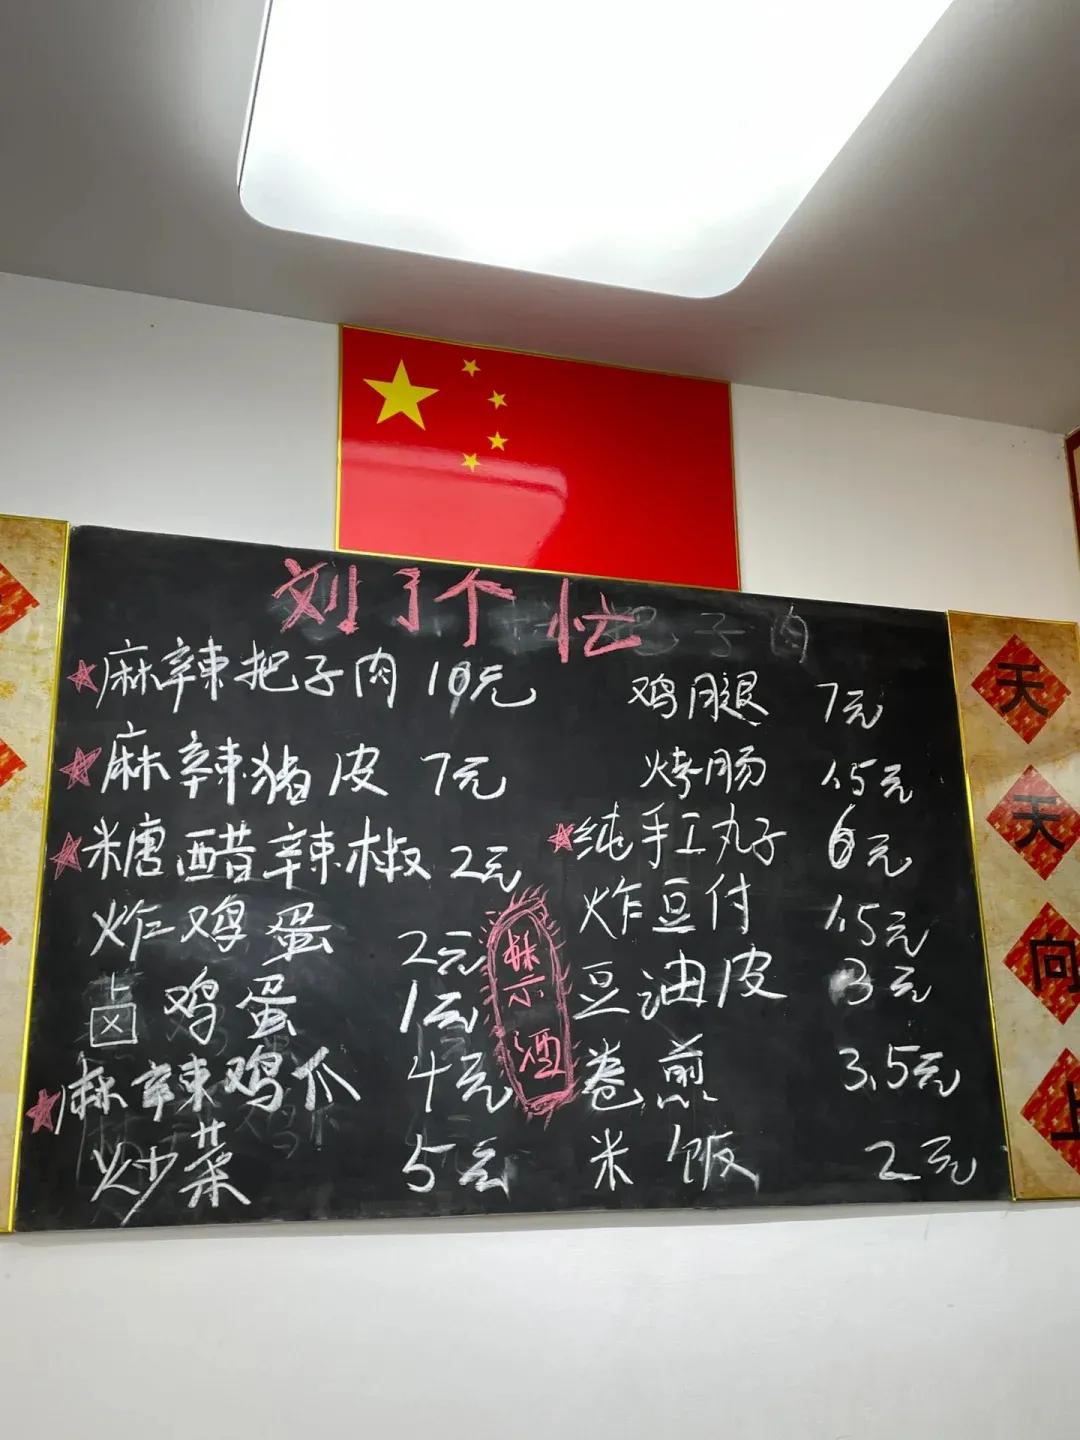 刘了个忙
麻辣把子肉 10元
麻辣猪皮 7元
糖醋辣椒 2元
炸鸡蛋 2元
卤鸡蛋 1元
麻辣鸡爪 4元
炒菜 5元
禁示酒
鸡腿 7元
烤肠 1.5元
纯手工丸子 6元
炸豆付 1.5元
豆油皮 3元
卷煎 3.5元
米饭 2元
子肉
天
天
向
上